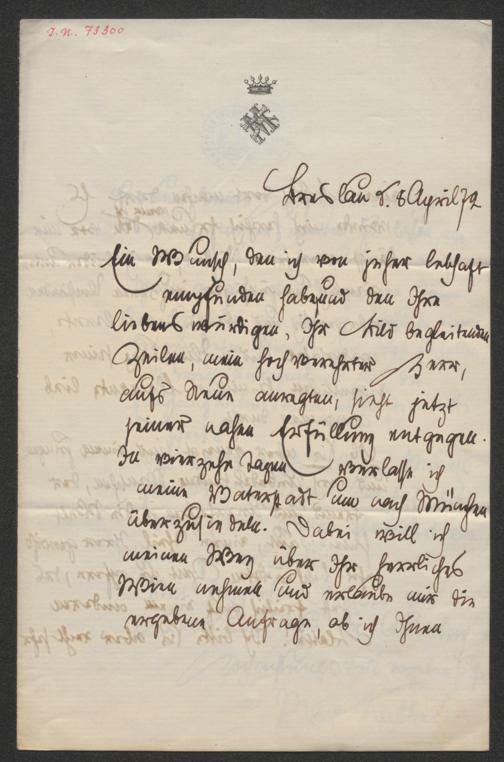 J. N. 73300
Breslau d. 8 April 79
Ein Wunsch, den ich von jeher lebhaft
empfunden habe, und den Ihre
liebenswürdigen, Ihr Bild begleitenden
Zeilen, mein hochverehrter Herr,
aufs Neue anregten, sieht jetzt
seiner nahen Erfüllung entgegen.
In vierzehn Tagen verlasse ich
meine Vaterstadt um nach München
überzusiedeln. Dabei will ich
meinen Weg über Ihr herrliches
Wien nehmen und erlaube mir die
ergebene Anfrage, ob ich Ihnen